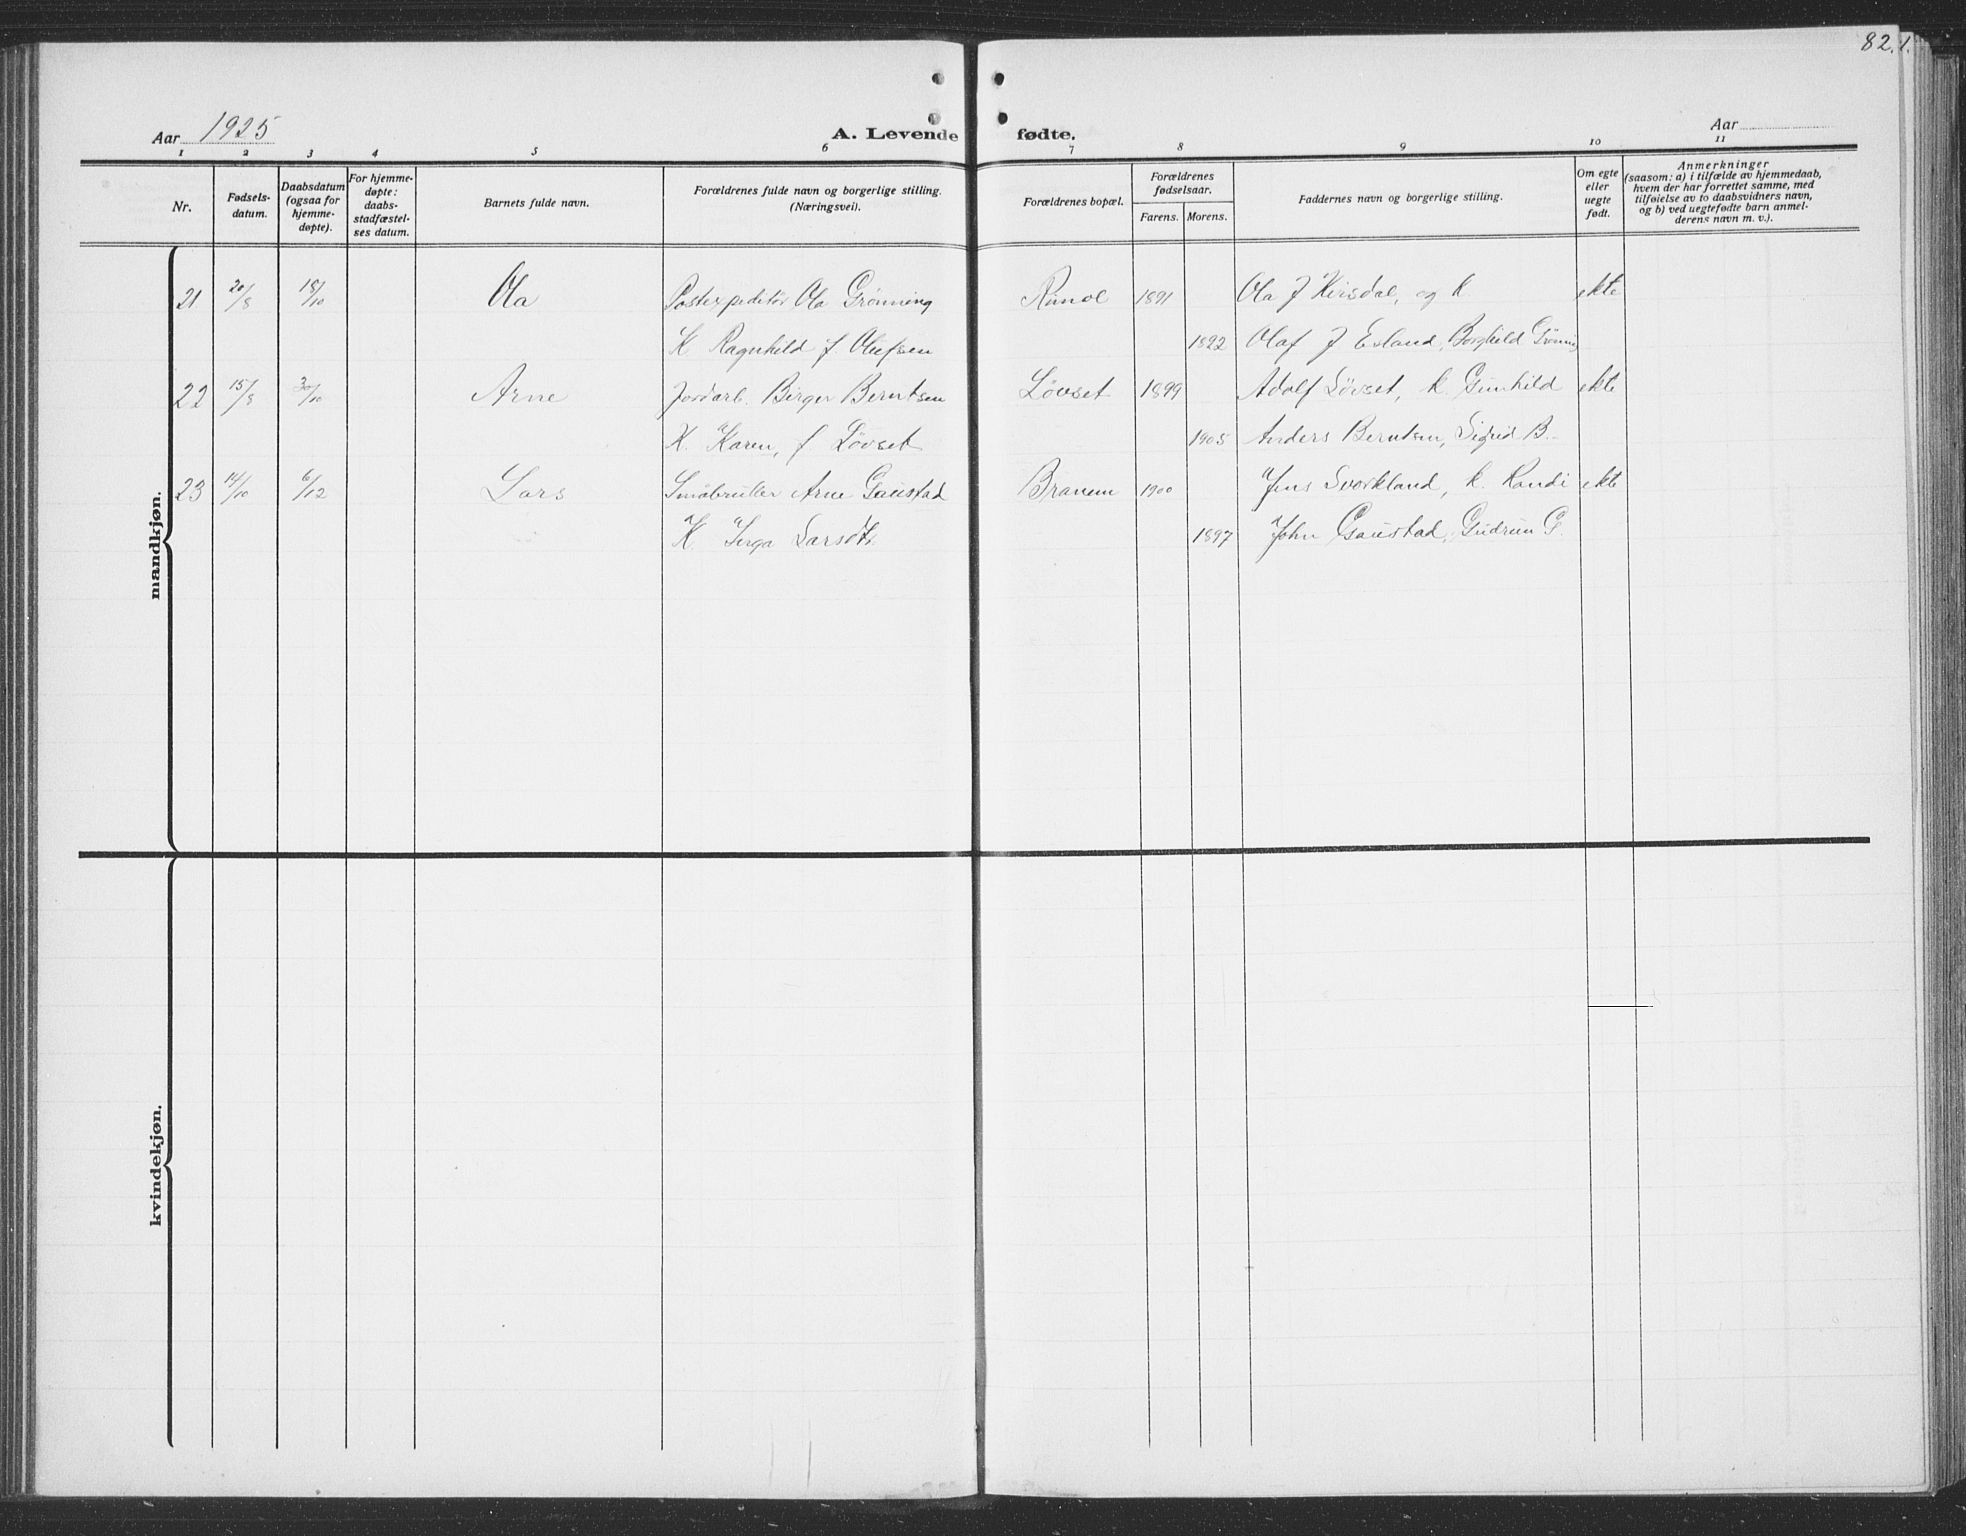 82.
Aar 1925
A. Levende fødte.
Aar
1 2 3 4 5 6 7 8 9 10 11
Nr.
Fødsels-
datum.
Daabsdatum
(ogsaa for
hjemme-
døpte).
For hjemme-
døpte:
daabs-
stadfæstel-
ses datum.
Barnets fulde navn.
Forældrenes fulde navn og borgerlige stilling.
(Næringsvei).
Forældrenes bopæl.
Forældrenes
fødselsaar.
Farens. Morens.
Faddernes navn og borgerlige stilling.
Om egte
eller
uegte
født.
Anmerkninger
(saasom: a) i tilfælde av hjemmedaab,
hvem der har forrettet samme, med
tilføielse av to daabsvidners navn,
og b) ved uegtefødte barn anmel-
derens navn m. v.).
mandkjøn.
21 20/8 18/10 Ola Postexpeditør Ola Grønning Rimol 1891 Ola J og K ekte
K. Ragnhild f. Olufsen 1892 Olaf J Borghild Grønning
22 15/8 30/10 Arne Jordarb. Birger Berntsen Løvset 1899 Adolf Løvset, k. Gunhild ekte
K. Karen, f. Løvset 1905 Anders Berntsen, Sigrid B.
23 14/10 6/12 Lars Småbruker Arne Gaustad Branem 1900 Jens Svorkland, k. Randi ekte
K Inga Larsdtr. 1897 John Gaustad, Gudrun G.
kvindekjøn.